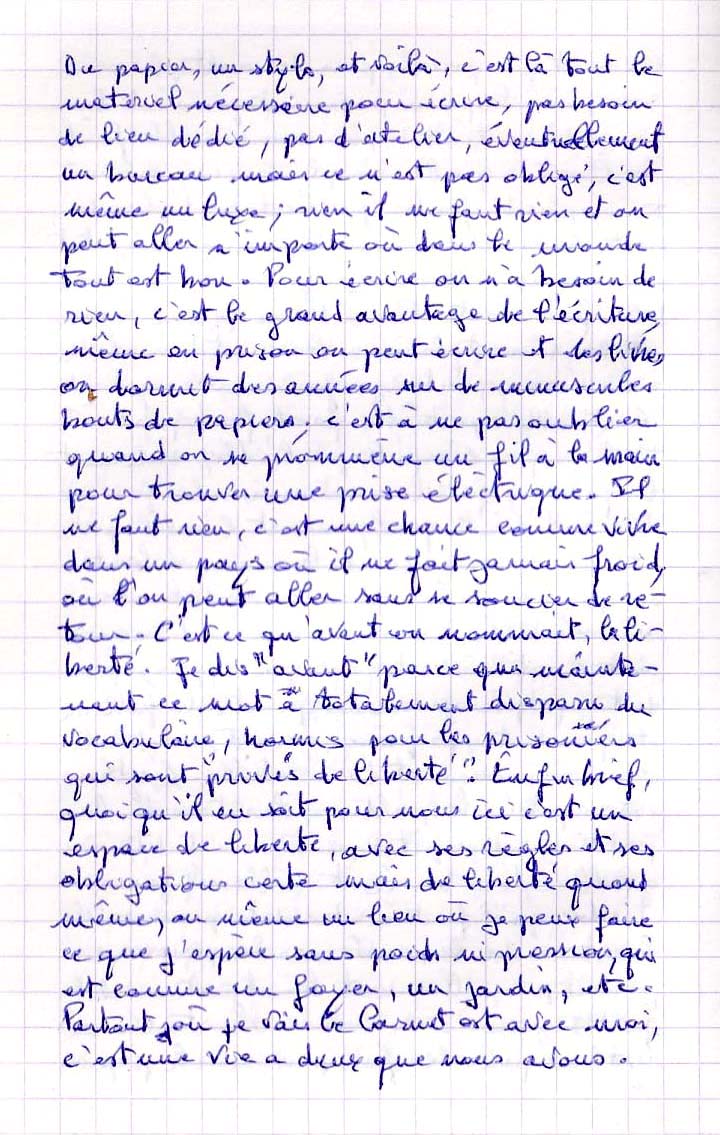 Du papier, un stylo, et voilà, c'est là tout le
materiel nécessaire pour écrire, pas besoin
de lieu dédié, pas d'atelier, éventuellement
un bureau mais ce n'est pas obligé, c'est
même un luxe ; rien il ne faut rien et on
peut aller n'importe où dans le monde
tout est bon. Pour écrire on n'a besoin de
rien, c'est le grand avantage de l'écriture,
même en prison on peut écrire et des livres
on donnit des années sur de minuscules
bouts de papiers, c'est à ne pas oublier
quand on se promène un fil à la main
pour trouver une prise électrique. Il
ne faut rien, c'est une chance comme vivre
dans un pays où il ne fait jamais froid,
où l'on peut aller sans se soucier de re-
tour. C'est ce qu'avant on nommait, la li-
berté. Je dis "avant" parce que mainte-
nant ce mot a totalement disparu du
vocabulaire, hormis pour les prisonniers
qui sont "privés de liberté". Enfin bref,
quoiqu'il en soit pour nous ici c'est un
espace de liberté, avec ses règles et ses
obligations certe mais de liberté quand
même, ou même un lieu où je peux faire
ce que j'espère sans poids ni pression, qui
est comme un foyer, un jardin, etc.
Partout où je vais le Carnet est avec moi,
c'est une vie a deux que nous avons.